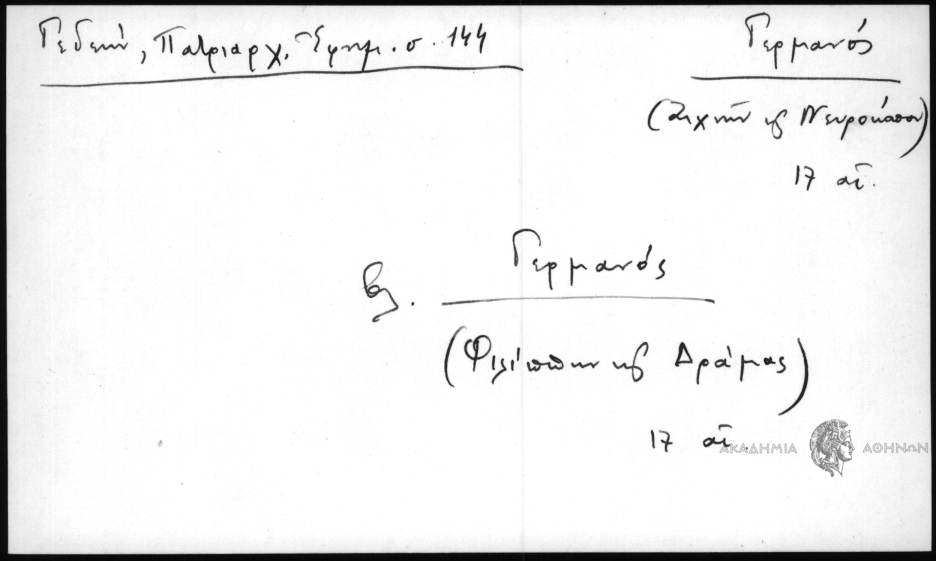 Γεδεών, Πατριαρχ. Ἐφημ. σ. 144
Γερμανός
(Ζιχνῶν κ Νευροκόπου)
17 αἰ.
βλ. Γερμανός
(Φιλίππων κ Δράμας)
17 αἰ.
ΑΚΑΔΗΜΙΑ ΑΘΗΝΩΝ